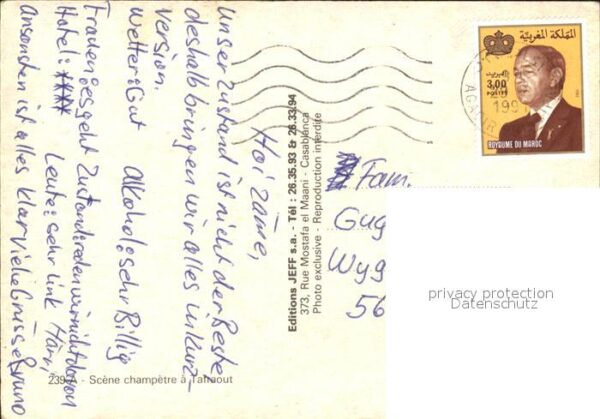 Hoi zäme,
Unser Zustand ist nicht der Beste
deshalb bringen wir alles in Kurz-
version.
Wetter: Gut Alkohol: sehr Billig
Frauen: es geht Zustand: reden wir nicht davon
Hotel: Leute: sehr link Häuj
Ansonsten ist alles klar Viele Grüsse Bruno
239 A - Scène champêtre à Tafraout
Editions JEFF s.a. - Tél : 26.35.93 & 26.33.94
373, Rue Mostafa el Maani - Casablanca
Photo exclusive - Reproduction interdite
المملكة المغربية
البريد
3,00
POSTES
ROYAUME DU MAROC
AGADIR
199
Fam.
Gug
Wyg
56
privacy protection
Datenschutz